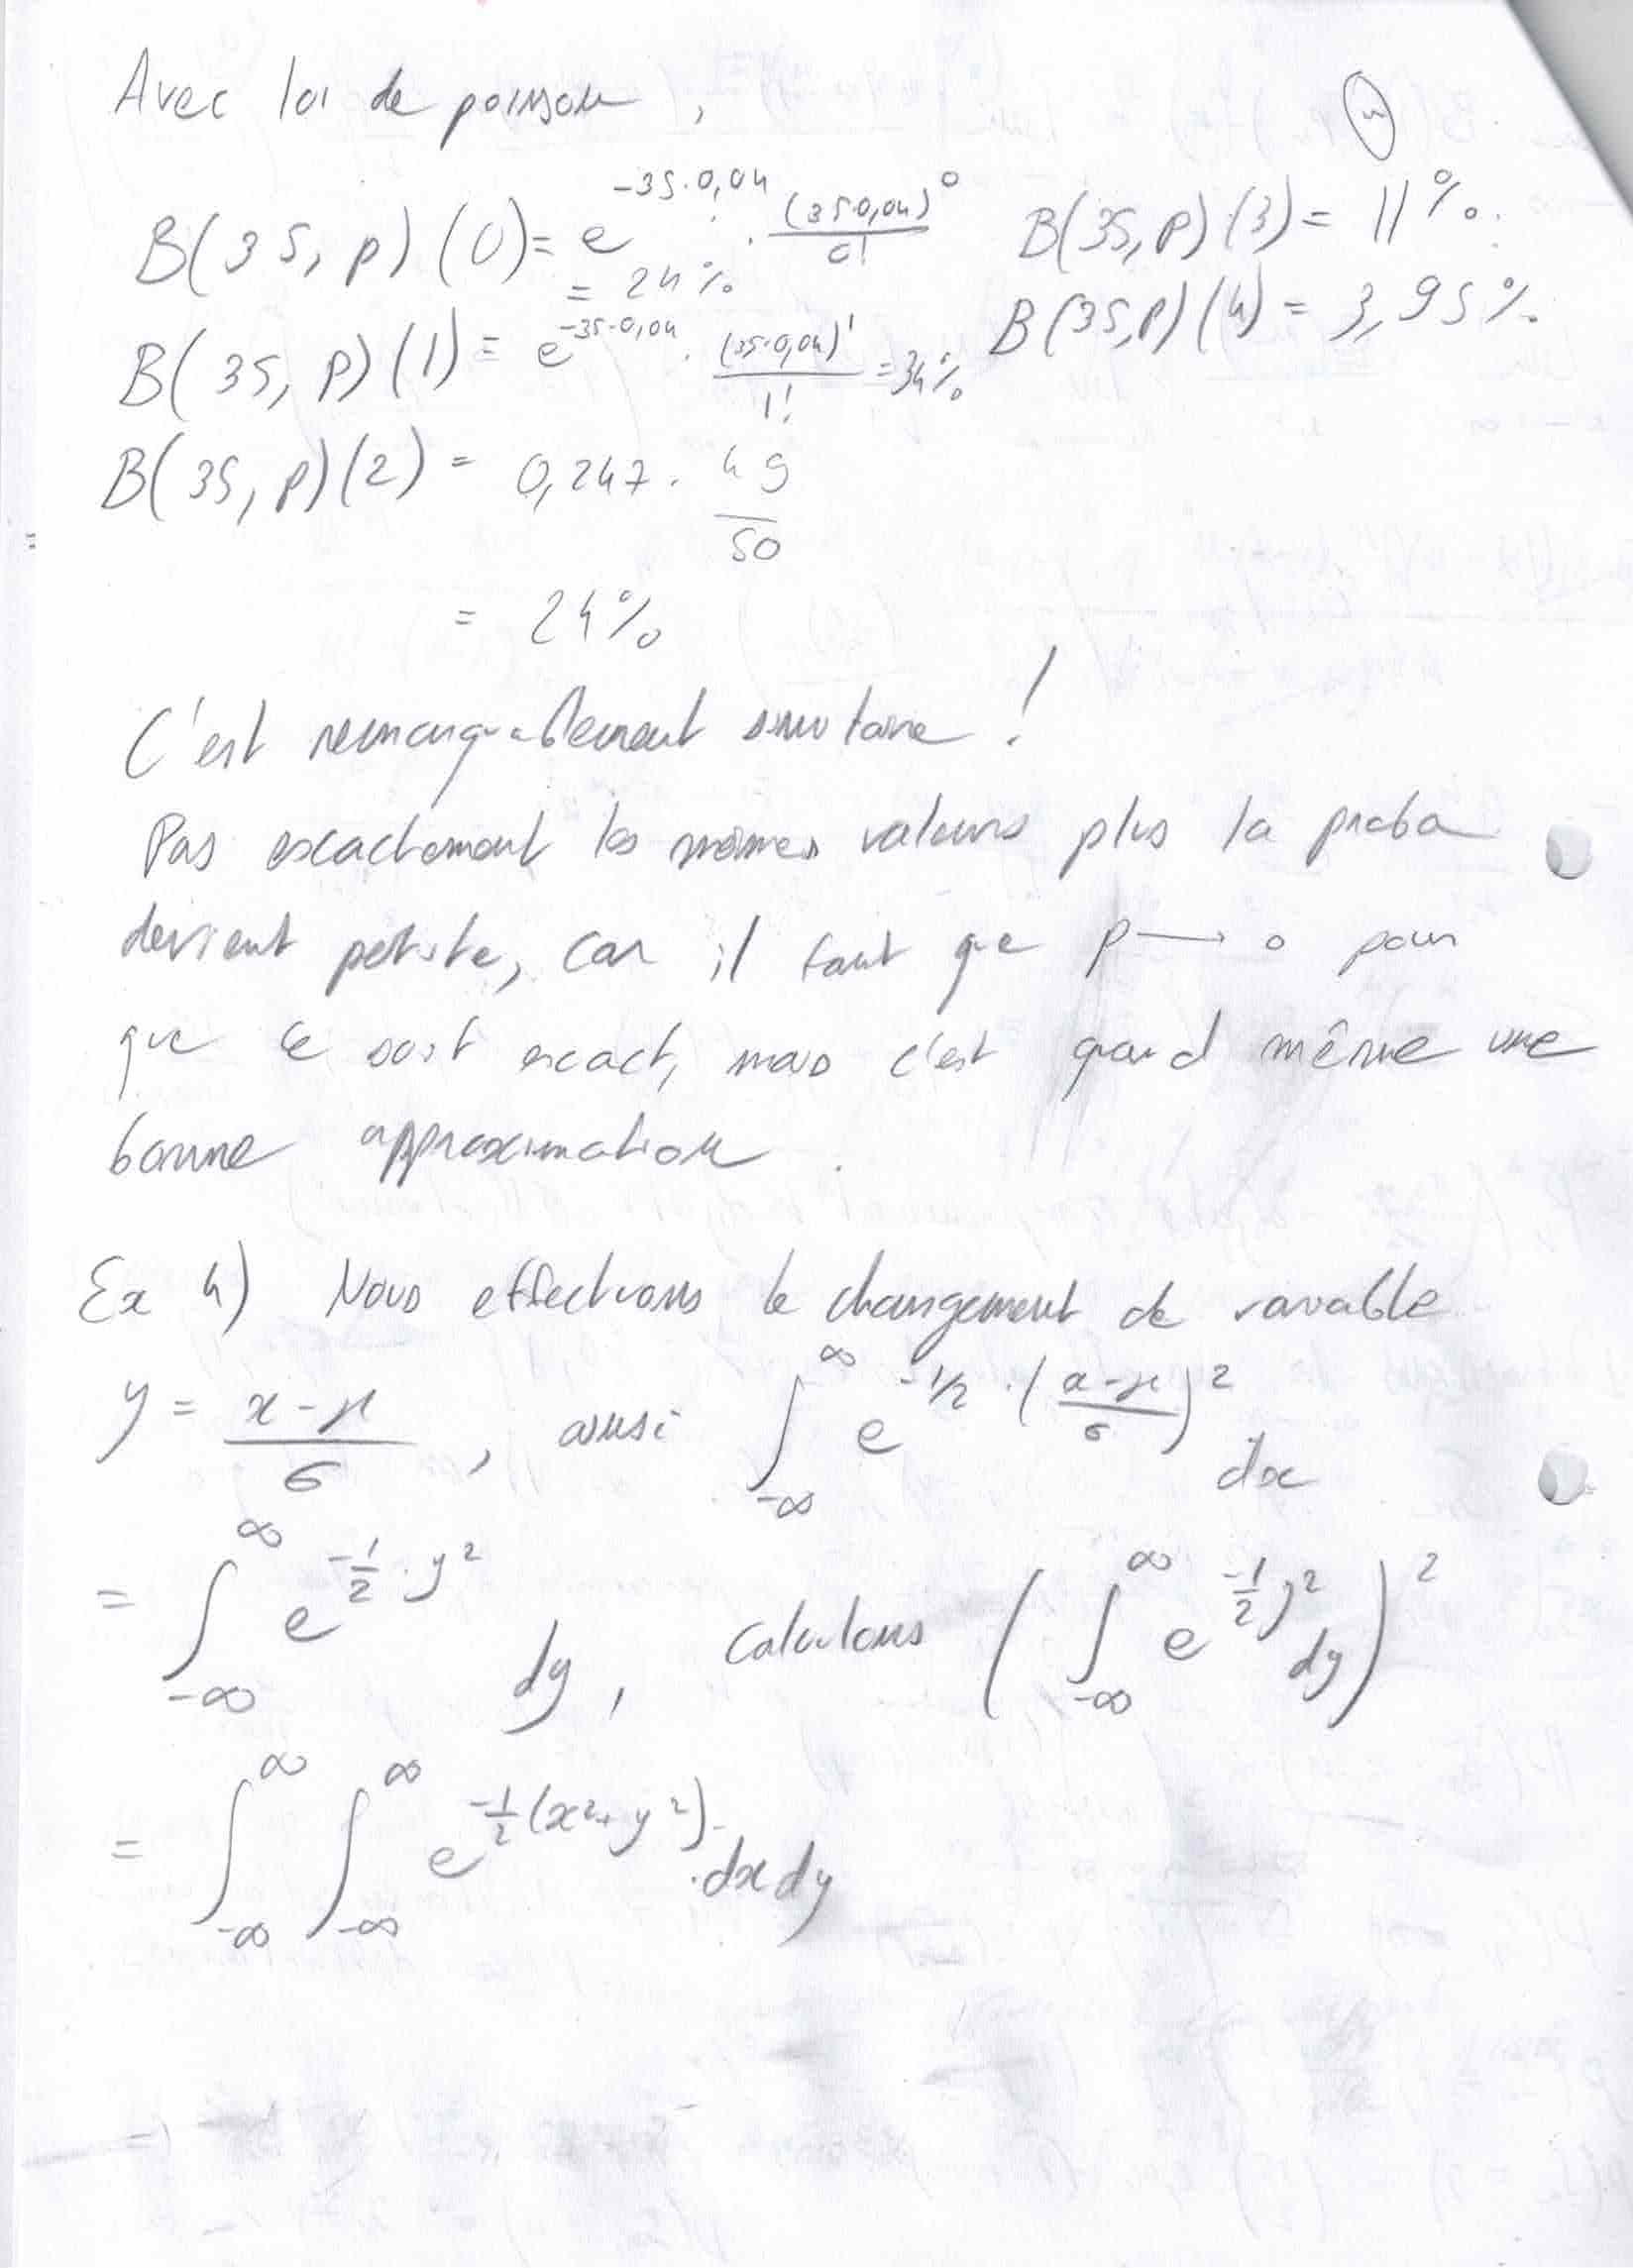 Avec loi de poisson,
B(35, p)(0) = e^{-35·0,04} · \frac{(35·0,04)^0}{0!} = 24%
B(35, p)(1) = e^{-35·0,04} · \frac{(35·0,04)^1}{1!} = 34%
B(35, p)(2) = 0,247 · \frac{49}{50}
= 24%
B(35, p)(3) = 11%.
B(35, p)(4) = 3,95%.
C'est remarquablement similaire !
Pas exactement les mêmes valeurs plus la proba
devient petite, car il faut que p → 0 pour
que ce soit exact, mais c'est quand même une
bonne approximation.
Ex 4) Nous effectuons le changement de variable
y = \frac{x-μ}{σ}, ainsi ∫_{-∞}^{∞} e^{-1/2 · (\frac{x-μ}{σ})^2} dx
= ∫_{-∞}^{∞} e^{-\frac{1}{2}·y^2} dy, calculons (∫_{-∞}^{∞} e^{-\frac{1}{2}y^2} dy)^2
= ∫_{-∞}^{∞} ∫_{-∞}^{∞} e^{-\frac{1}{2}(x^2+y^2)} · dx dy